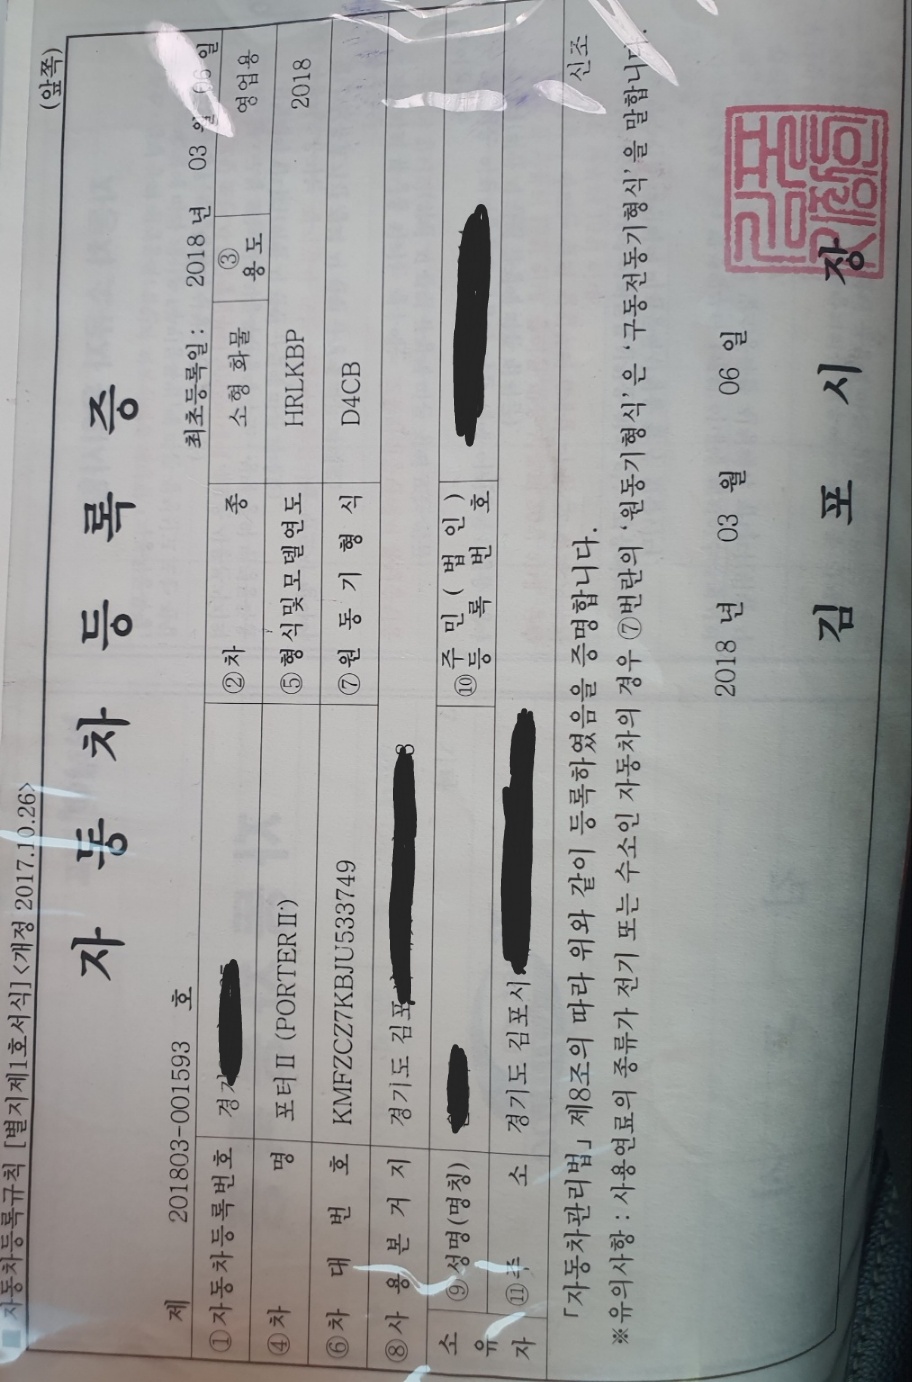 ■ 자동차등록규칙 [별지제1호서식] <개정 2017.10.26>
(앞쪽)
자 동 차 등 록 증
제 201803-001593 호
최초등록일 : 2018 년 03 월 06 일
①자동차등록번호 경기
②차 종 소형 화물
③용도 영업용
④차 명 포터Ⅱ (PORTERⅡ)
⑤형식및모델연도 HRLKBP 2018
⑥차 대 번 호 KMFZCZ7KBJU533749
⑦원 동 기 형 식 D4CB
⑧사 용 본 거 지 경기도 김포
소유자
⑨성명(명칭)
⑩주민(법인)등록번호
⑪주 소 경기도 김포시
「자동차관리법」제8조의 따라 위와 같이 등록하였음을 증명합니다. 신조
※유의사항 : 사용연료의 종류가 전기 또는 수소인 자동차의 경우 ⑦번란의 '원동기형식'은 '구동전동기형식'을 말합니다.
2018 년 03 월 06 일
김 포 시 장